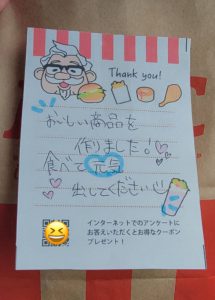 Thank you!
おいしい商品を
作りました!
食べて元気
出してください!!
インターネットでのアンケートに
お答えいただくとお得なクーポン
プレゼント!